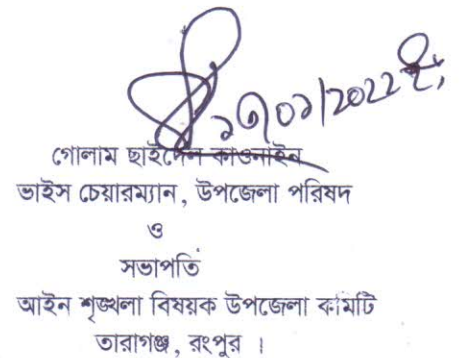 ১৩/০১/2022 ইং
গোলাম ছাইদেল কাওনাইন
ভাইস চেয়ারম্যান, উপজেলা পরিষদ
ও
সভাপতি
আইন শৃঙ্খলা বিষয়ক উপজেলা কমিটি
তারাগঞ্জ, রংপুর ।